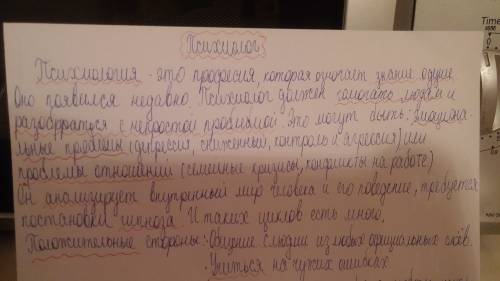 Психиолог
Психиология - это професия, которая означает знание о душе.
Оно появился недавно. Психиолог должен помогать людям и
разобраться с непростой проблемой. Это могут быть: эмоциона-
льные проблемы (дипрессия, сниженный контроль и агрессия) или
проблемы отношении (семейные кризисы, конфликты на работе)
Он анализирует внутренный мир человега и его поведение, требуется
постановки гипноза. И таких циклов есть много.
Положительные стороны: Общение с людми из любых социальных слоёв.
· Учиться на чужих ошибках.
Time
0